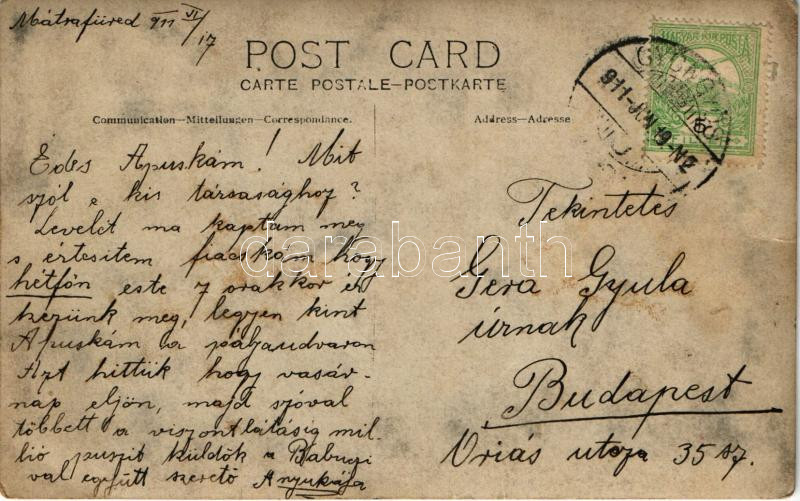 Mátrafüred 911 VI/17
POST CARD
CARTE POSTALE—POSTKARTE
Communication—Mitteilungen—Correspondance.
Address—Adresse
MAGYAR KIR. POSTA
911-JUN 19 N2
Édes Apuskám! Mit
szól e kis társasághoz?
Levelét ma kaptam meg
s értesitem fiacskám hogy
hétfőn este 7 órakkor ér
kezünk meg, legyen kint
Apuskám a pályaudvaron
Azt hittük hogy vasár-
nap eljön, majd szóval
többett a viszontlátásig mil-
lió puszit küldök a Babuczi
val együtt szerető Anyukája
Tekintetes
Gera Gyula
úrnak
Budapest
Óriás utcza 35 sz.
darabanth